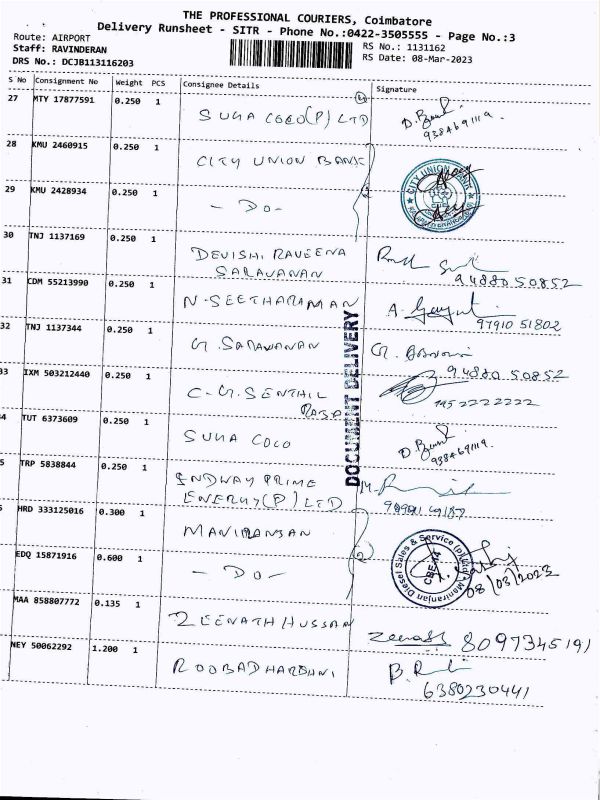 THE PROFESSIONAL COURIERS, Coimbatore
Delivery Runsheet - SITR - Phone No.:0422-3505555 - Page No.:3
Route: AIRPORT
Staff: RAVINDERAN
DRS No.: DCJB113116203
RS No.: 1131162
RS Date: 08-Mar-2023
S No Consignment No Weight PCS Consignee Details Signature
27 MTY 17877591 0.250 1 SUGA COCO(P) LTD
28 KMU 2460915 0.250 1 CITY UNION BANK
CITY UNION BANK
29 KMU 2428934 0.250 1 - DO -
30 TNJ 1137169 0.250 1 DEVISHI RAVEENA
SARAVANAN 94880 50852
31 CDM 55213990 0.250 1 N-SEETHARAMAN A.
97910 51802
32 TNJ 1137344 0.250 1 G. SARAVANAN G.
94880 50852
33 IXM 503212440 0.250 1 C-G.SENTHIL
RAJA
DOCUMENT DELIVERY
4 TUT 6373609 0.250 1 SUGA COCO
5 TRP 5838844 0.250 1 ENDWAY PRIME
ENERGY(P) LTD
HRD 333125016 0.300 1 MANIRANJAN
Maniranjan Diesel Sales & Service (P) Ltd
CBE-14
EDQ 15871916 0.600 1 - DO - 08/03/2023
MAA 858807772 0.135 1 ZEENATH HUSSAN Zeenath 8097345191
NEY 50062292 1.200 1 ROOBADHARSHNI B.
6380230441